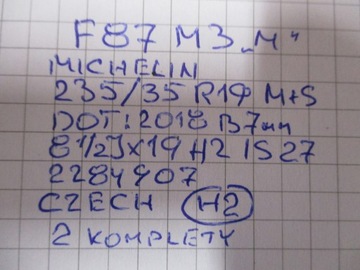 F87 M3 „M"
MICHELIN
235/35 R19 M+S
DOT: 2018 B7mm
8 1/2Jx19 H2 IS 27
2284907
CZECH H2
2 KOMPLETY